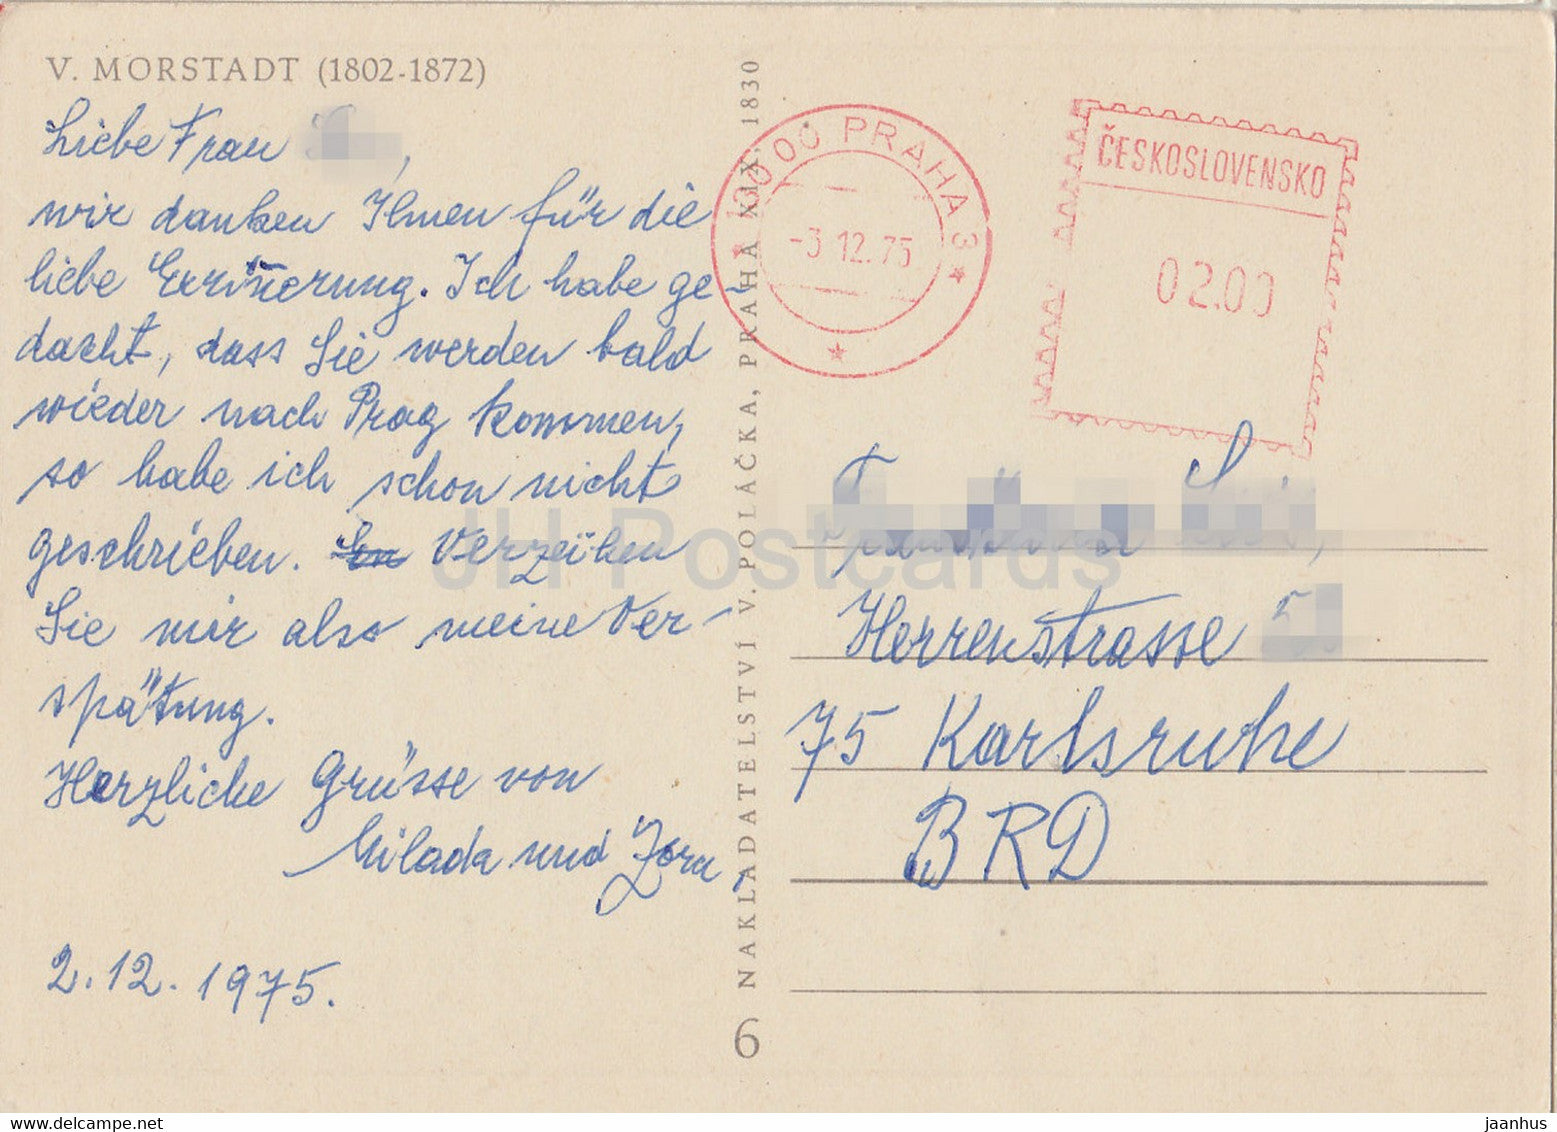 V. MORSTADT (1802-1872)
Liebe Frau
wir danken Ihnen für die
liebe Erinerung. Ich habe ge-
dacht, dass Sie werden bald
wieder nach Prag kommen,
so habe ich schon nicht
geschrieben. Verzeihen
Sie mir also meine Ver-
spätung.
Herzliche Grüsse von
Milada und Jora,
2.12.1975.
NAKLADATELSTVÍ V. POLÁČKA, PRAHA XIX, 1830
6
PRAHA 3
-3.12.75
ČESKOSLOVENSKO
02.00
Herrenstrasse
75 Karlsruhe
BRD
JH Postcards
jaanhus